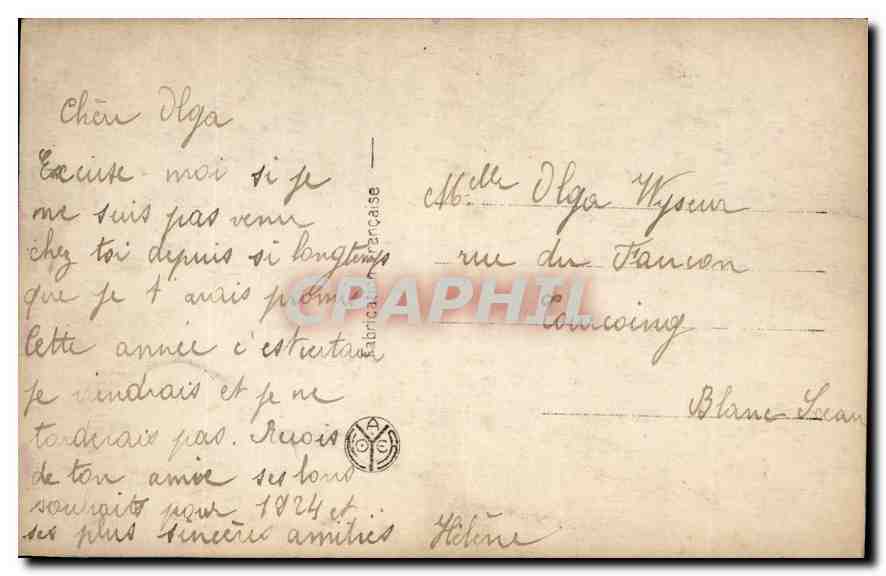 Chère Olga
Excuse-moi si je
ne suis pas venu
chez toi depuis si longtemps
que je t'avais promis
Cette année c'est certain
je viendrais et je ne
tarderais pas. Reçois
de ton amie ses bons
souhaits pour 1924 et
ses plus sincères amitiés
Hélène
Fabrication Française
CPAPHIL
Melle Olga Wyseur
rue du Faucon
Tourcoing
Blanc Sceau